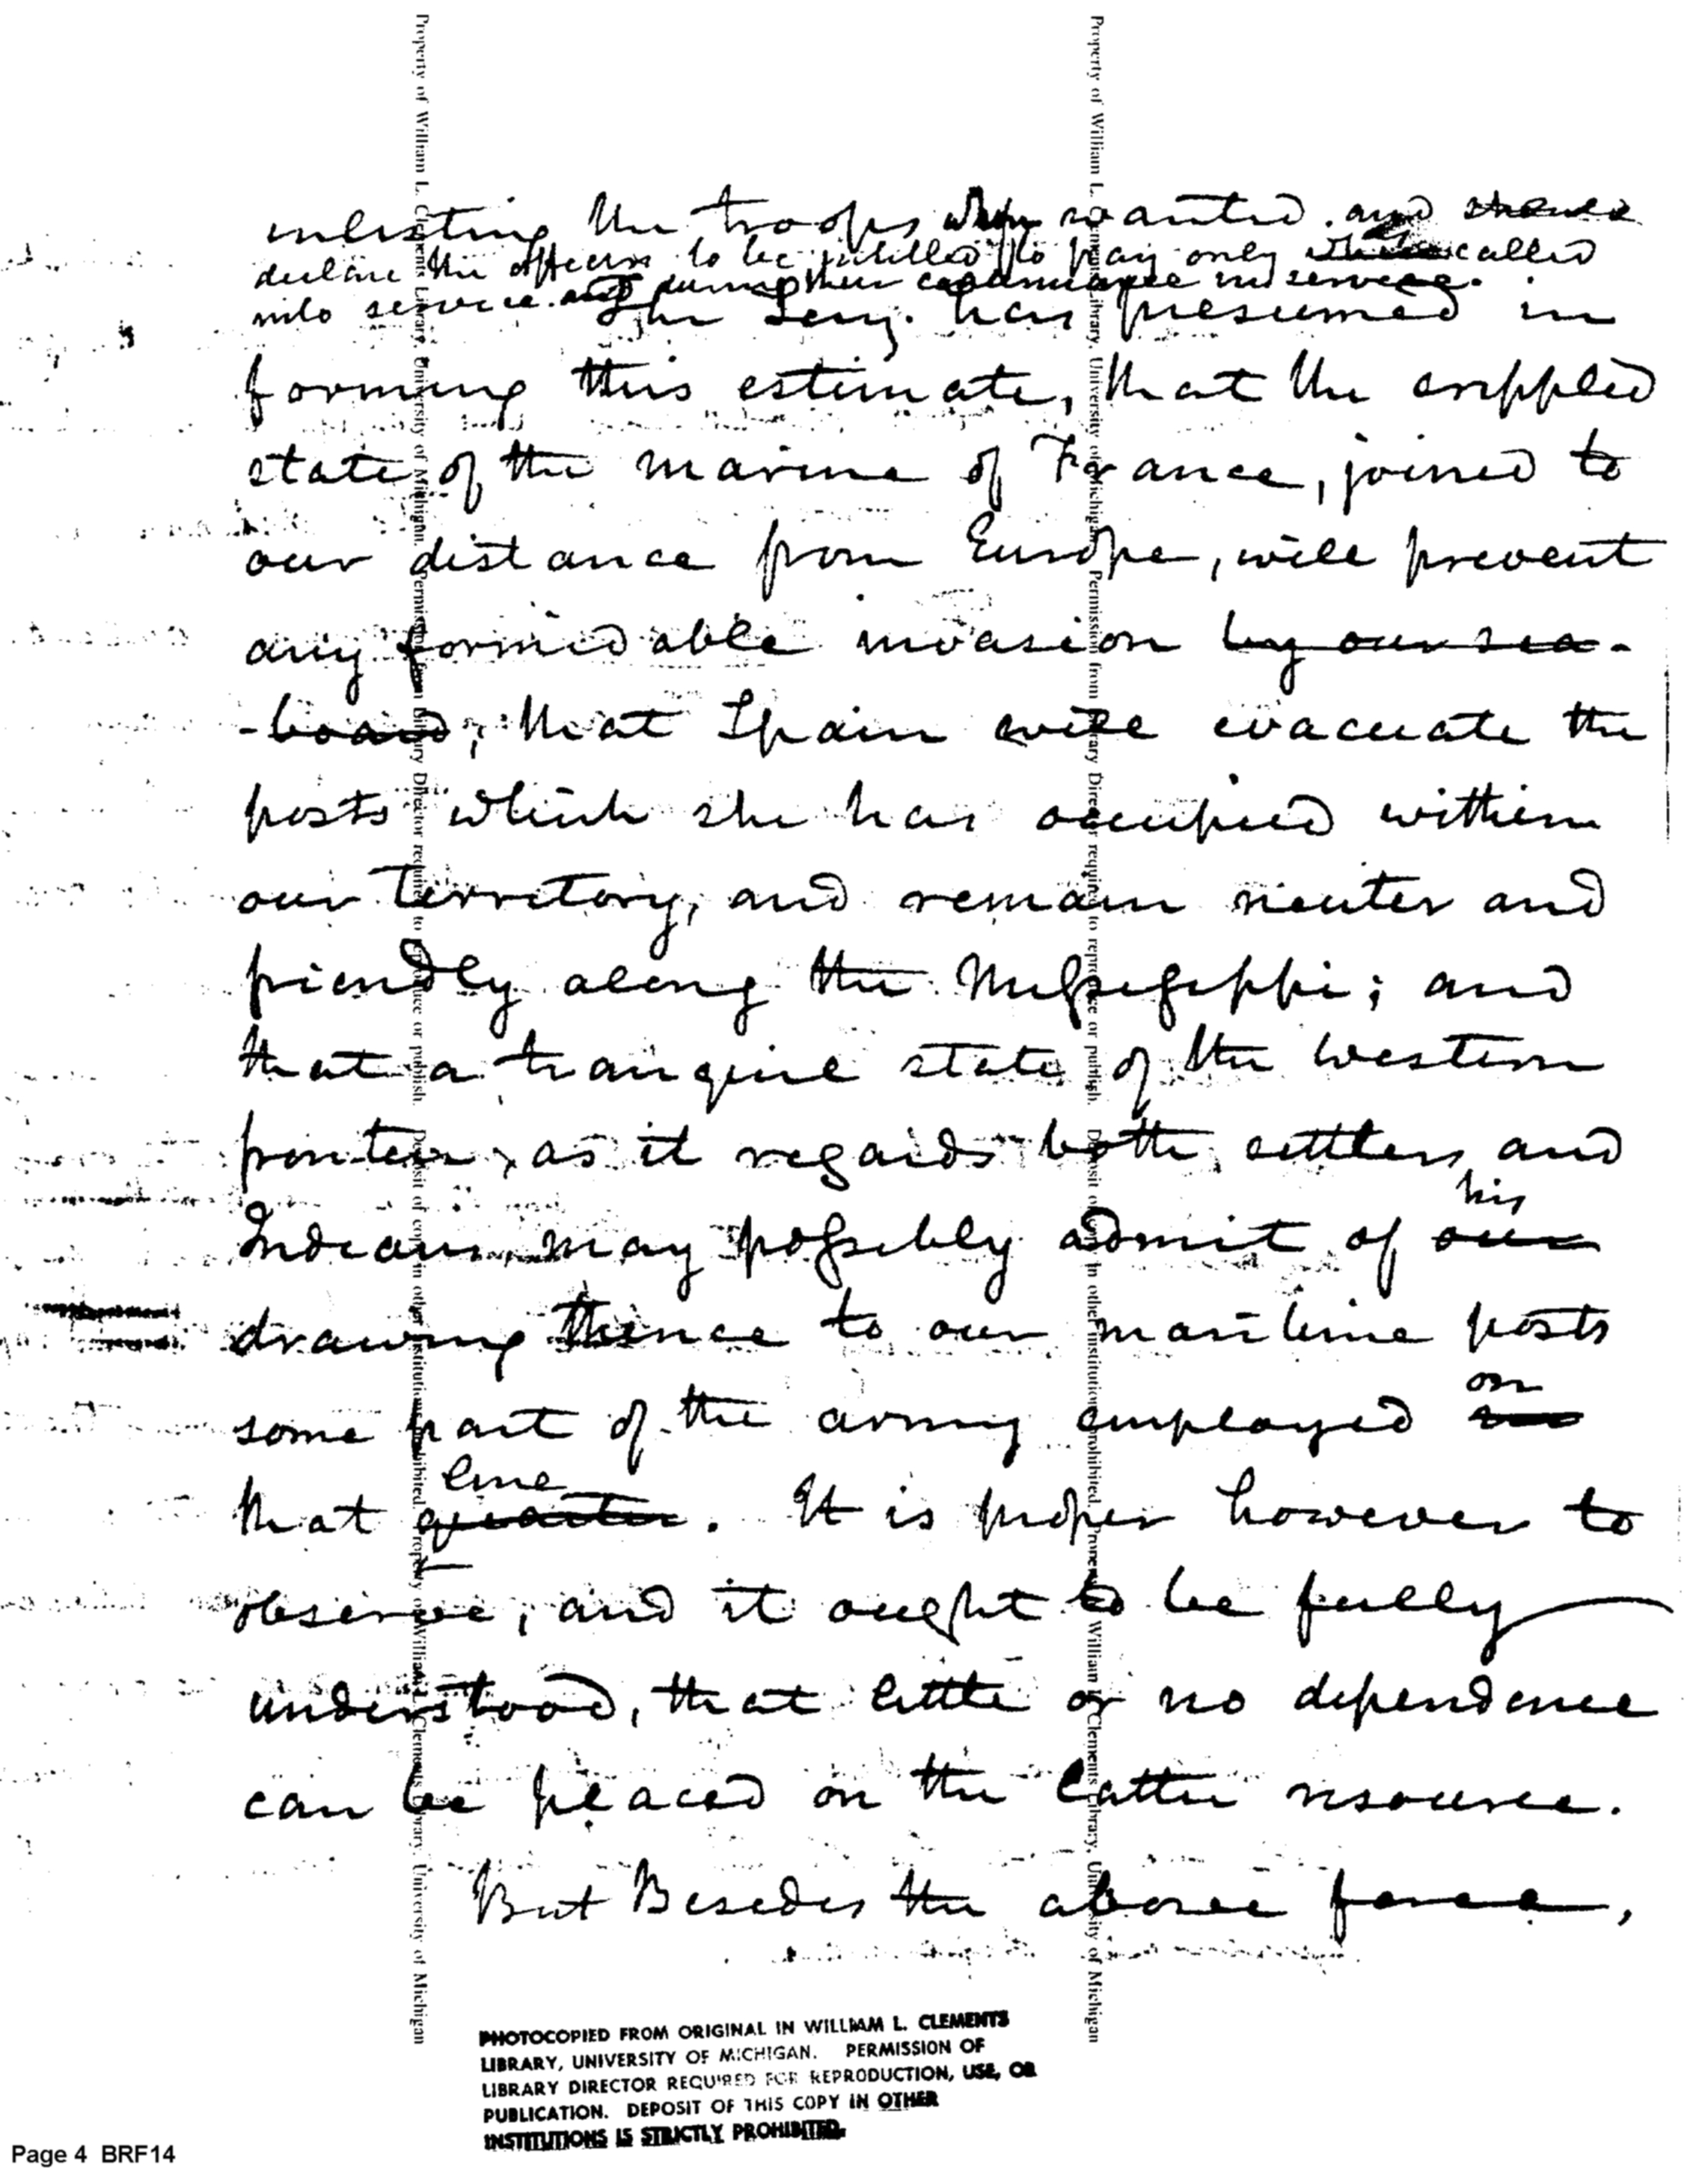 enlisting the troops when wanted. and should
declare the officers to be intitled to pay only when called
into service. and during their continuance in service.
The Secy. has presumed in
forming this estimate, that the crippled
state of the marine of France, joined to
our distance from Europe, will prevent
any formidable invasion by our sea-
-board; that Spain will evacuate the
posts which she has occupied within
our Territory, and remain neuter and
friendly along the Mississippi; and
that a tranquil state of the western
frontier, as it regards both settlers and
Indians, may possibly admit of our
his
drawing thence to our maritime posts
some part of the army employed
on
that quarter. It is proper however to
line
observe, and it ought to be fully
understood, that little or no dependence
can be placed on the latter resource.
But Besides the above force,
PHOTOCOPIED FROM ORIGINAL IN WILLIAM L. CLEMENTS
LIBRARY, UNIVERSITY OF MICHIGAN. PERMISSION OF
LIBRARY DIRECTOR REQUIRED FOR REPRODUCTION, USE, OR
PUBLICATION. DEPOSIT OF THIS COPY IN OTHER
INSTITUTIONS IS STRICTLY PROHIBITED.
Page 4 BRF14
Property of William L. Clements Library, University of Michigan. Permission from Library Director required to reproduce or publish. Deposit of copy in other institution prohibited. Property of William L. Clements Library, University of Michigan
Property of William L. Clements Library, University of Michigan. Permission from Library Director required to reproduce or publish. Deposit of copy in other institution prohibited. Property of William L. Clements Library, University of Michigan